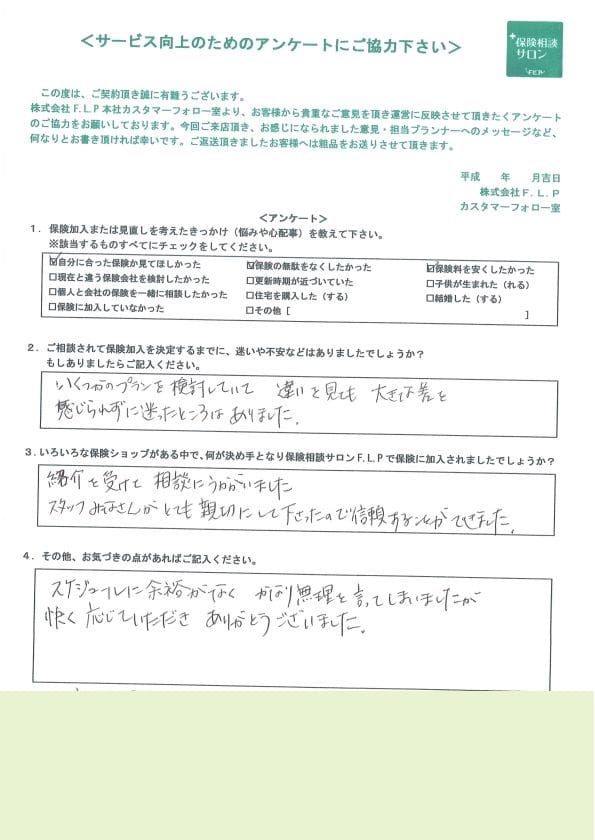 ＜サービス向上のためのアンケートにご協力下さい＞
保険相談
サロン
F.L.P
この度は、ご契約頂き誠に有難うございます。
株式会社F.L.P本社カスタマーフォロー室より、お客様から貴重なご意見を頂き運営に反映させて頂きたくアンケート
のご協力をお願いしております。今回ご来店頂き、お感じになられました意見・担当プランナーへのメッセージなど、
何なりとお書き頂ければ幸いです。ご返送頂きましたお客様へは粗品をお送りさせて頂きます。
平成　年　月吉日
株式会社F.L.P
カスタマーフォロー室
＜アンケート＞
1．保険加入または見直しを考えたきっかけ（悩みや心配事）を教えて下さい。
※該当するものすべてにチェックをしてください。
☑自分に合った保険か見てほしかった ☑保険の無駄をなくしたかった ☑保険料を安くしたかった
□現在と違う保険会社を検討したかった □更新時期が近づいていた □子供が生まれた（れる）
□個人と会社の保険を一緒に相談したかった □住宅を購入した（する） □結婚した（する）
□保険に加入していなかった □その他［　］
2．ご相談されて保険加入を決定するまでに、迷いや不安などはありましたでしょうか？
もしありましたらご記入ください。
いくつかのプランを検討していて 違いを見ても 大きな差を
感じられずに迷ったところはありました。
3．いろいろな保険ショップがある中で、何が決め手となり保険相談サロンF.L.Pで保険に加入されましたでしょうか？
紹介を受けて相談にうかがいました
スタッフみなさんがとても親切にして下さったので信頼することができました。
4．その他、お気づきの点があればご記入ください。
スケジュールに余裕がなく かなり無理を言ってしまいましたが
快く応じていただき ありがとうございました。